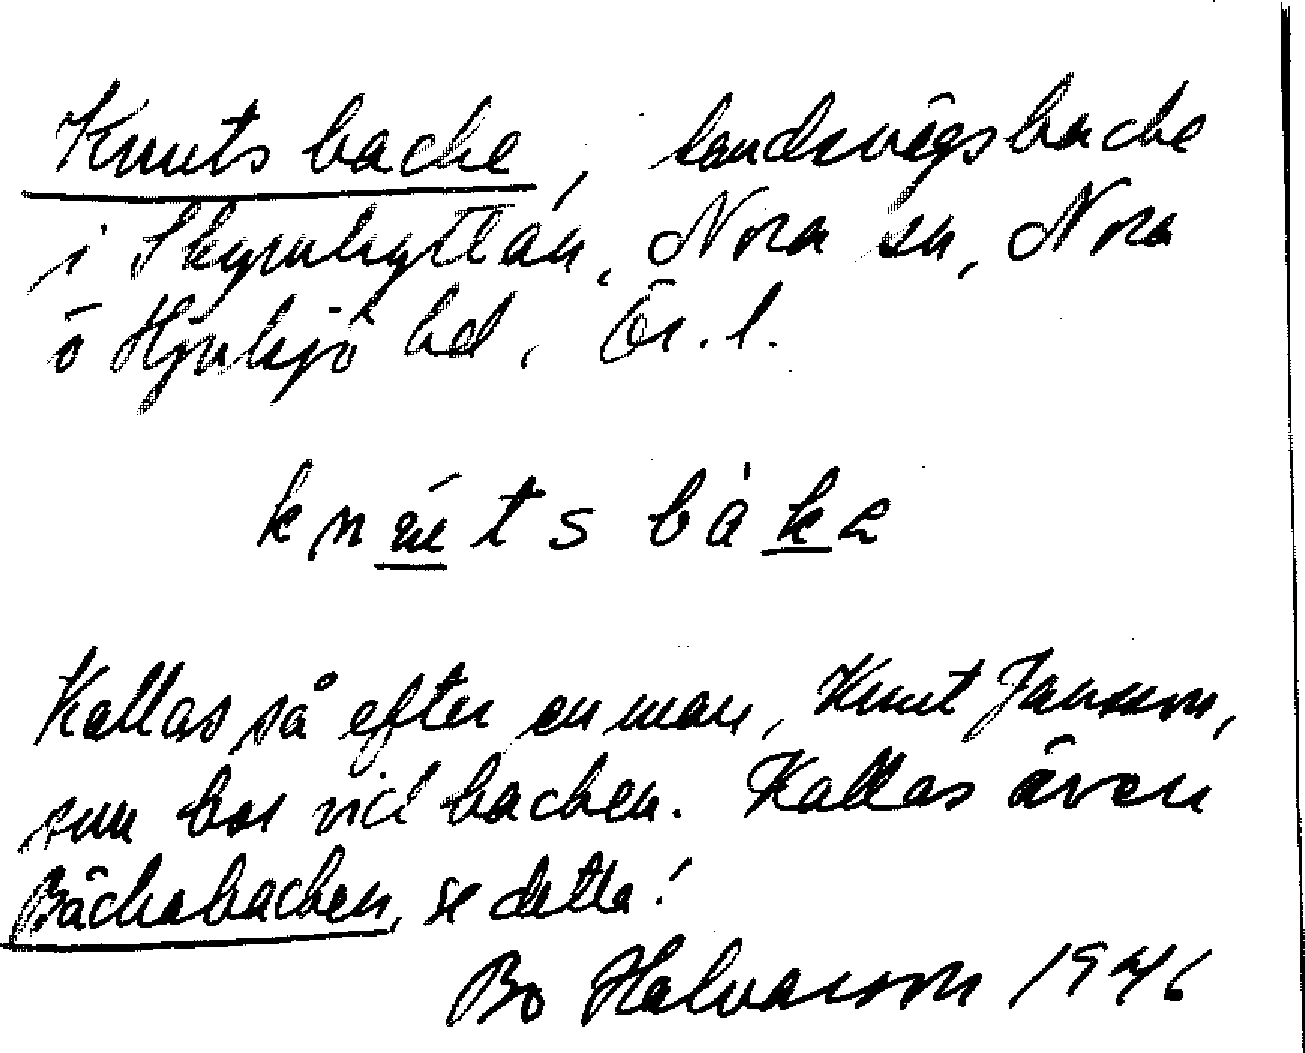 Knuts backe, landsvägsbacke
i Skrikarhyttan, Nora sn, Nora
o Hjulsjö hd, Ör. l.
knu̱ts bàk̲a
Kallas så efter en man, Knut Jansson,
som bor vid backen. Kallas även
Bäckabacken, se detta!
Bo Halvarsson 1946